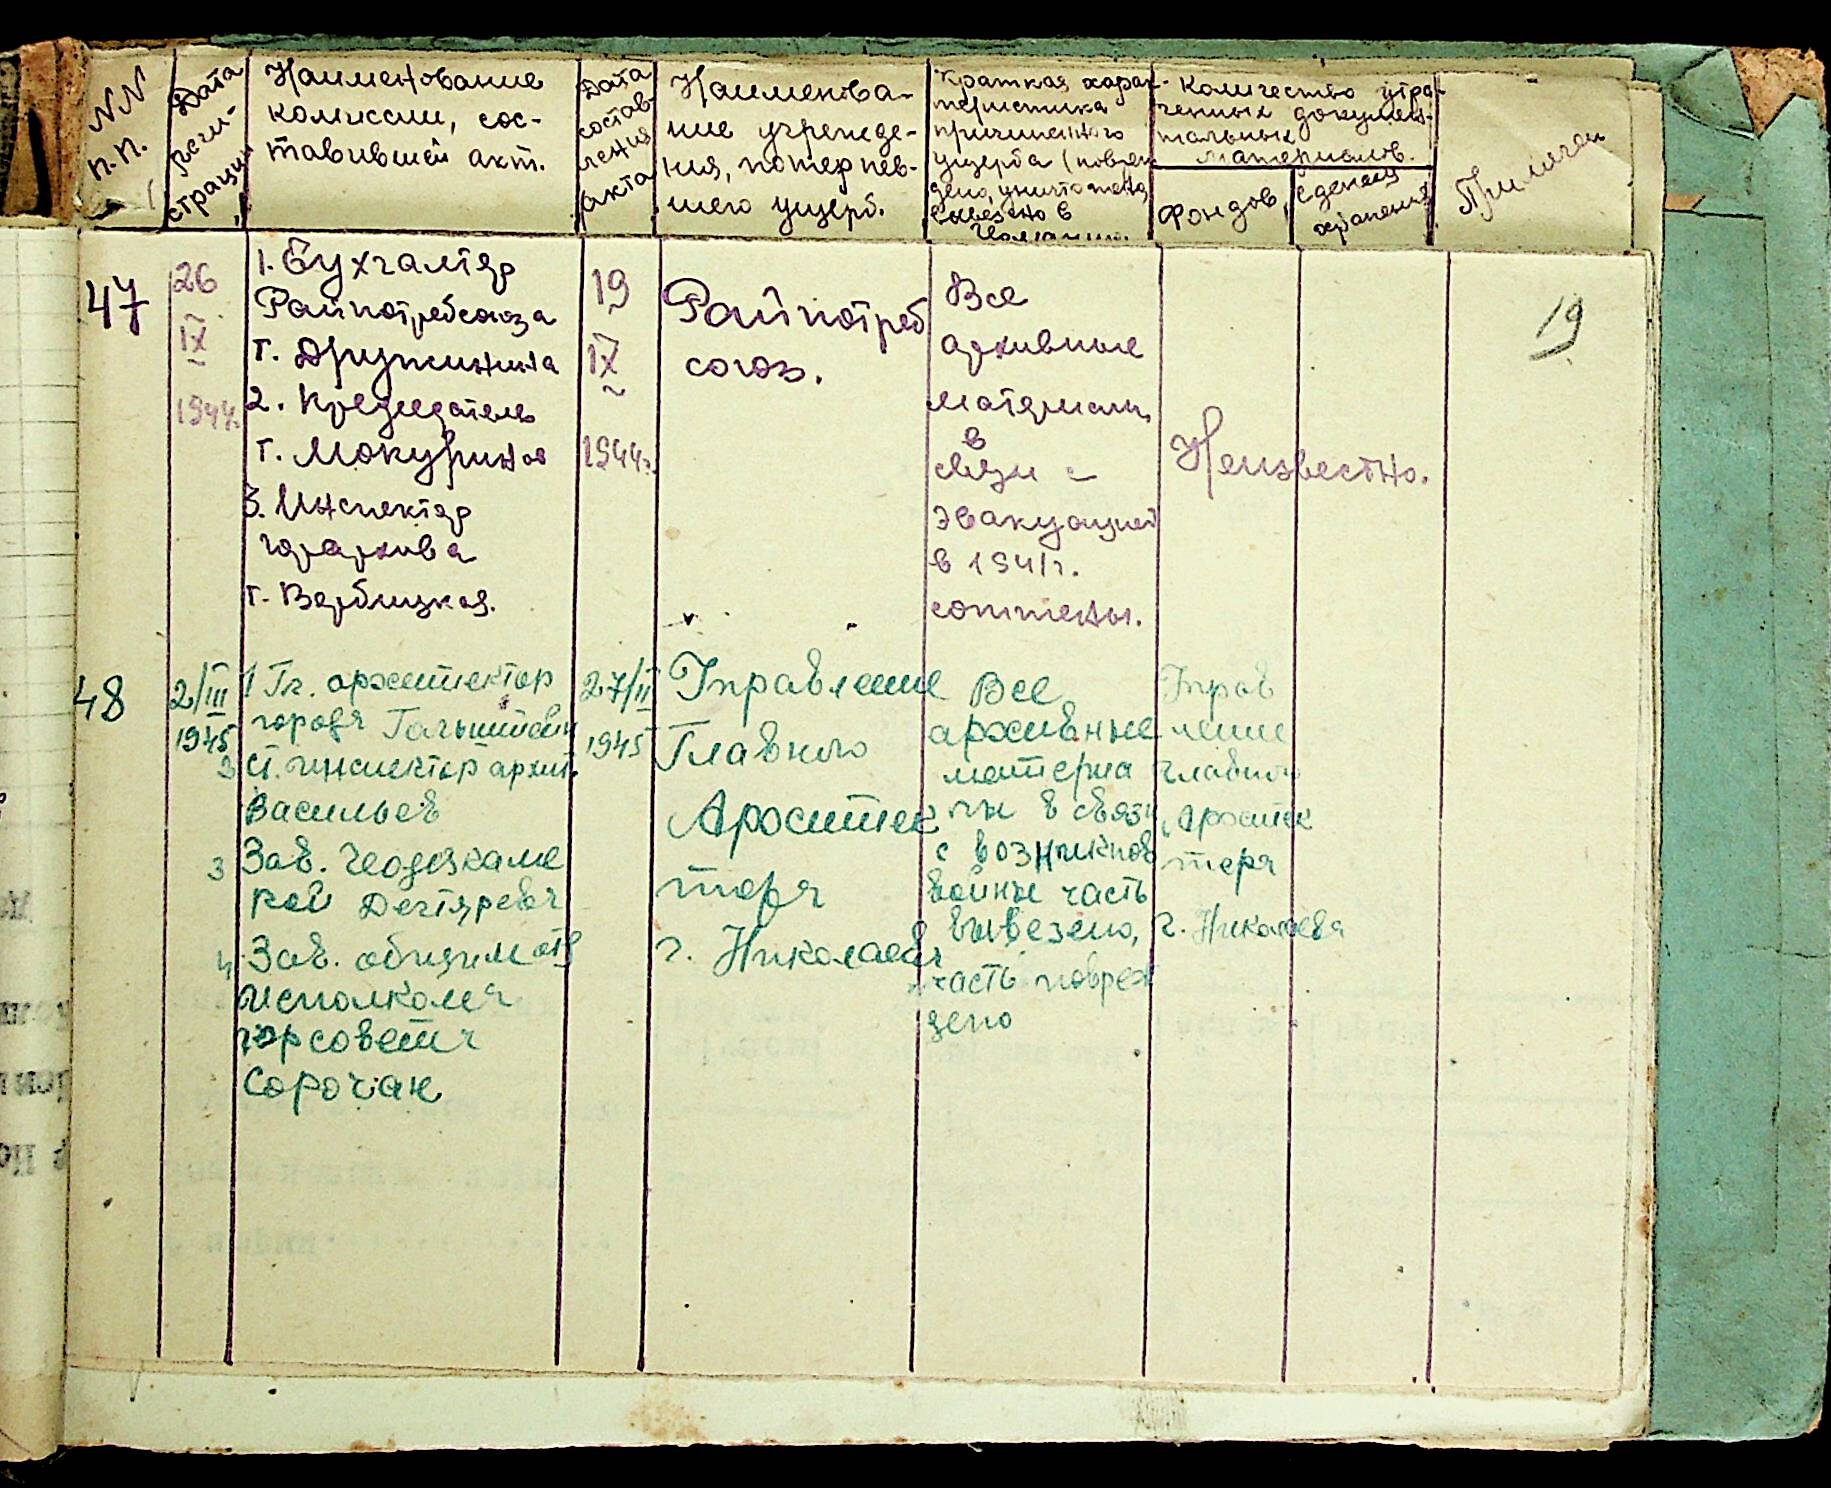 NN п.п.
Дата реги-
страции
Наименование
комиссии, сос-
тавившей акт.
Дата
состав-
ления
акта
Наименова-
ние учрежде-
ния, потерпев-
шего ущерб.
Краткая харак-
теристика
причиненного
ущерба (повреж
дено, уничтожено,
вывезено в
Количество утра-
ченных докумен-
тальных
материалов.
фондов,
единиц
хранения
Примечан
47
26
IX
1944.
1. Бухгалтер
Райпотребсоюза
т. Дружинина
2. Председатель
т. Мокурина
3. Инспектор
горархива
т. Вербицкая.
19
IX
1944г.
Райпотреб
союз.
Все
архивные
материалы
в
связи с
эвакуацией
в 1941г.
сожжены.
Неизвестно.
19
48
2/III
1945
1 Гл. архитектор
города
2 ст. инспектор архит.
Васильев
3 Зав. Геодезкаме
рой Дегтярева
4 Зав. общим отд
исполкома
горсовета
Сорочан
27/II
1945
Управление
Главного
Архитек
тора
г. Николаева
Все
архивные
материа
лы в связи
с возникнов
войны часть
вывезено,
часть повреж
дено
Управ
ление
главного
Архитек
тора
г. Николаева